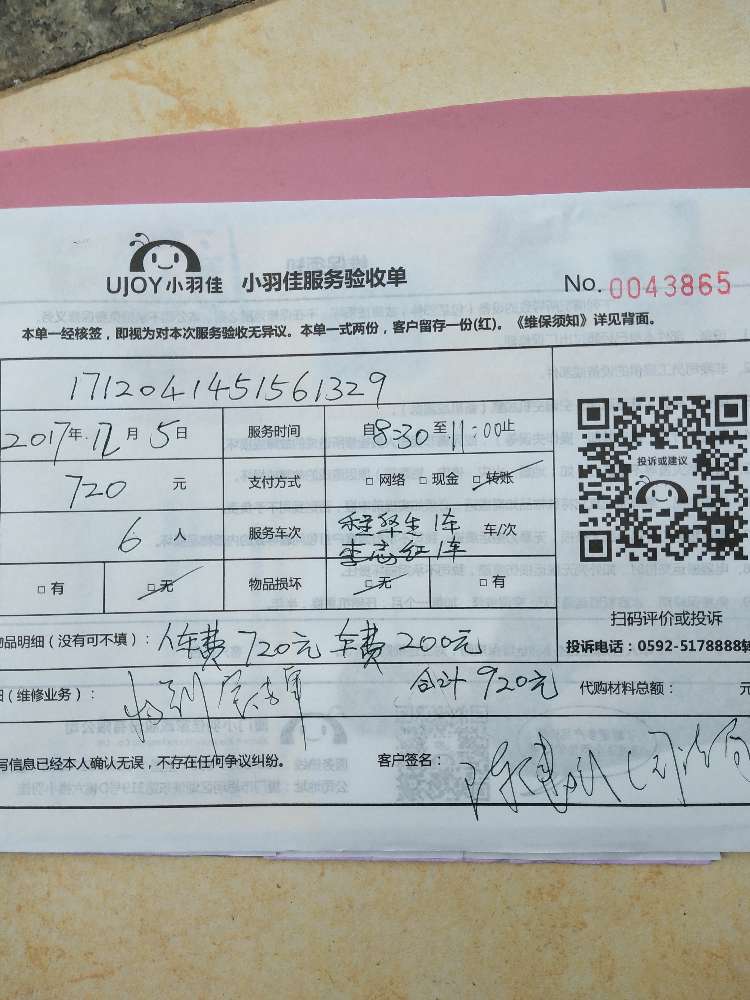 UJOY小羽佳 小羽佳服务验收单 No. 0043865
本单一经核签，即视为对本次服务验收无异议。本单一式两份，客户留存一份(红)。《维保须知》详见背面。
1712041451561329
2017年12月5日 服务时间 自8:30至11:00止
720元 支付方式 □网络 □现金 □转账
投诉或建议
6人 服务车次 程华生1车 李志红1车 车/次
□有 □无 物品损坏 □无 □有
扫码评价或投诉
物品明细（没有可不填）： 人车费720元 车费200元
投诉电话：0592-5178888转
（维修业务）： 合计920元 代购材料总额： 元
写信息已经本人确认无误，不存在任何争议纠纷。 客户签名：